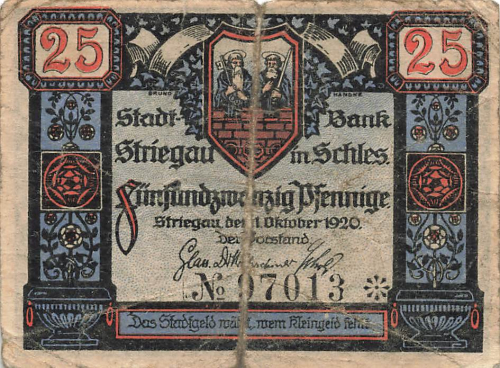 25 25
BRUNO HANOKE
Stadt- Bank
Striegau in Schles.
Fünfundzwanzig Pfennige
Striegau, den 1. Oktober 1920.
Der Vorstand
№ 97013 *
Das Stadtgeld wem Kleingeld fehlt